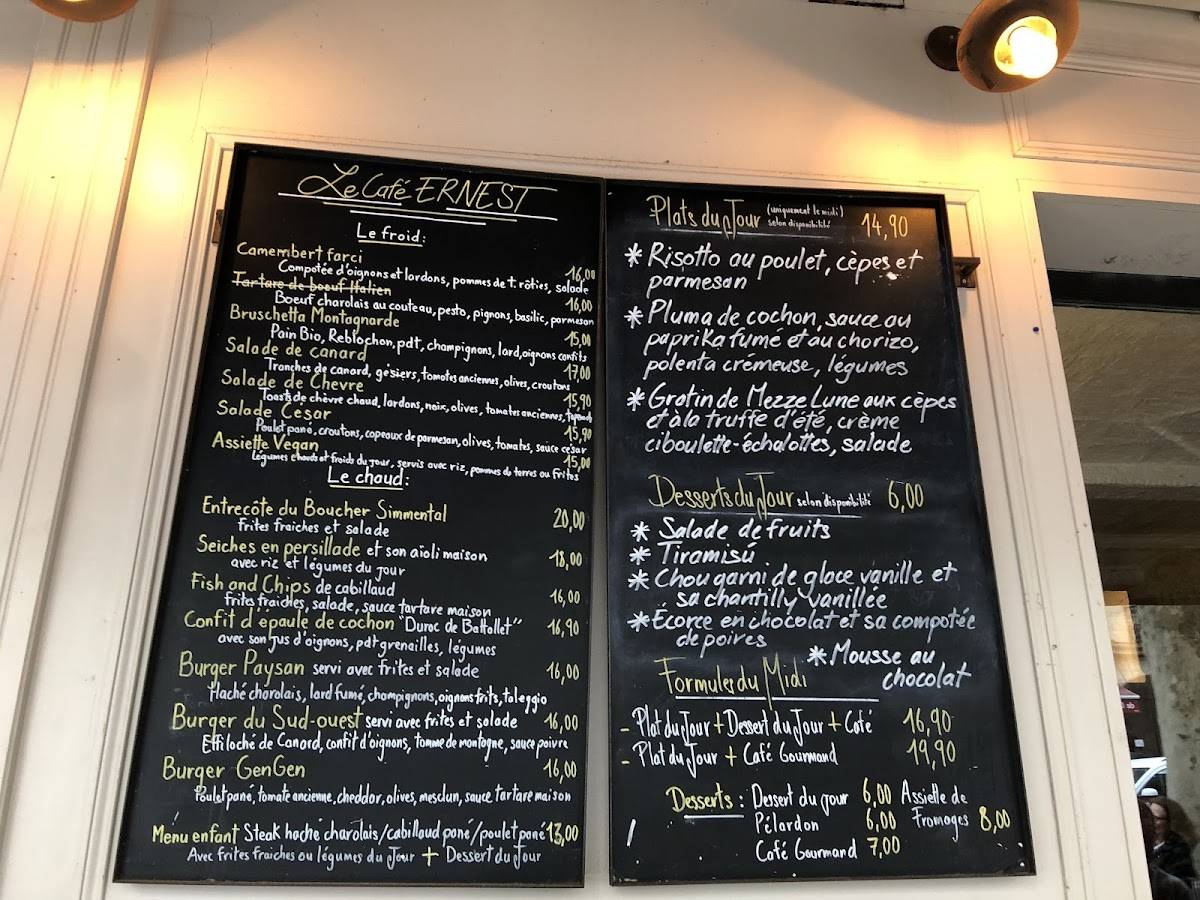 Le Café ERNEST
Le froid:
Camembert farci
Compotée d'oignons et lardons, pommes de t. rôties, salade 16,00
Tartare de boeuf Italien
Boeuf charolais au couteau, pesto, pignons, basilic, parmesan 16,00
Bruschetta Montagnarde
Pain Bio, Reblochon, pdt, champignons, lard, oignons confits 15,00
Salade de canard
Tranches de canard, gésiers, tomates anciennes, olives, croutons 17,00
Salade de Chevre
Toasts de chèvre chaud, lardons, noix, olives, tomates anciennes, 15,90
Salade César
Poulet pané, croutons, copeaux de parmesan, olives, tomates, sauce césar 15,90
Assiette Vegan
Légumes chauds et froids du jour, servis avec riz, pommes de terres ou frites 15,00
Le chaud:
Entrecôte du Boucher Simmental
frites fraiches et salade 20,00
Seiches en persillade et son aïoli maison
avec riz et légumes du jour 18,00
Fish and Chips de cabillaud
frites fraiches, salade, sauce tartare maison 16,00
Confit d'epaule de cochon "Duroc de Batallet" 16,90
avec son jus d'oignons, pdt grenailles, légumes
Burger Paysan servi avec frites et salade 16,00
Haché charolais, lard fumé, champignons, oignons frits, taleggio
Burger du Sud-ouest servi avec frites et salade 16,00
Effiloché de Canard, confit d'oignons, tomme de montagne, sauce poivre
Burger GenGen 16,00
Poulet pané, tomate ancienne, cheddar, olives, mesclun, sauce tartare maison
Menu enfant Steak haché charolais/cabillaud pané/poulet pané 13,00
Avec frites fraiches ou légumes du Jour + Dessert du Jour
Plats du Jour (uniquement le midi) 14,90
selon disponibilité
* Risotto au poulet, cèpes et
parmesan
* Pluma de cochon, sauce au
paprika fumé et au chorizo,
polenta crémeuse, légumes
* Gratin de Mezze Lune aux cèpes
et à la truffe d'été, crème
ciboulette-échalottes, salade
Desserts du Jour selon disponibilité 6,00
* Salade de fruits
* Tiramisú
* Chou garni de glace vanille et
sa chantilly vanillée
* Écorce en chocolat et sa compotée
de poires
* Mousse au
chocolat
Formules du Midi
- Plat du Jour + Dessert du Jour + Café 16,90
- Plat du Jour + Café Gourmand 19,90
Desserts : Dessert du jour 6,00
Pélardon 6,00
Café Gourmand 7,00
Assiette de
Fromages 8,00